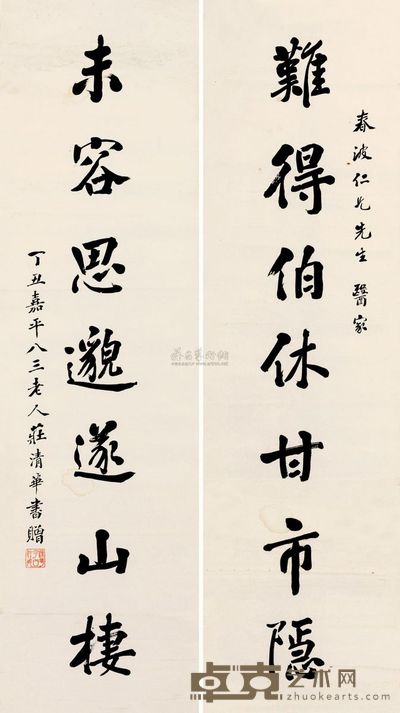 難得伯休甘市隱
春波仁兄先生 醫家
未容思邈遂山棲
丁丑嘉平八三老人莊清華書贈
卓克艺术网
zhuokearts.com